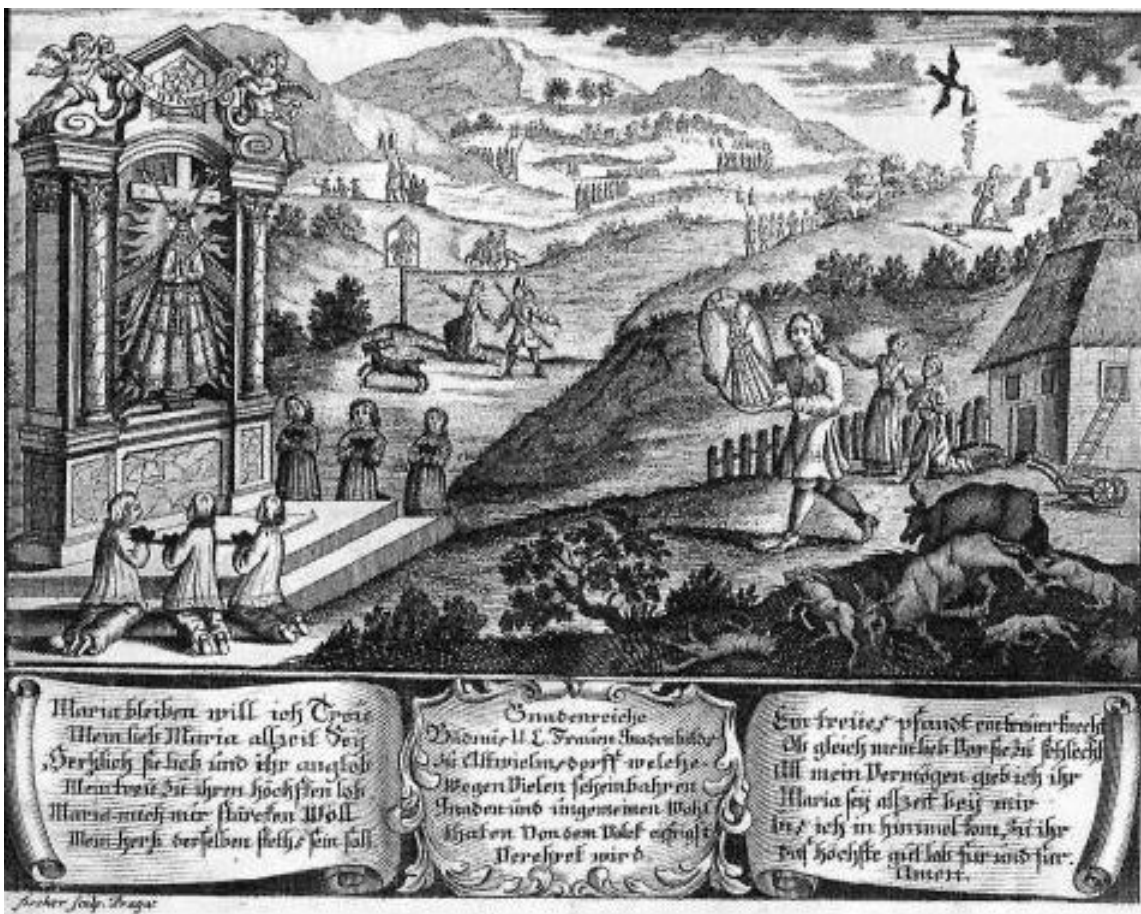 Maria bleiben will ich Treü
Mein lieb Maria allzeit Seÿ
Hertzlich sie lieb und ihr anglob
Mein treü Zu ihren höchsten lob
Maria mich nur stärcken Woll
Mein hertz derselben steths sein soll
Gnadenreiche
Bildnis U L Frauen Gnadenbilds
Zu Altwielmsdorff welche
Wegen Vielen scheinbahren
Gnaden und ungemeinen Wohl
thaten Von dem Volck eyfrigst
Verehret wird.
Ein treües pfandt ein treuer knecht
Ob gleich mein lieb Vor sie zu schlecht
All mein Vermögen gieb ich ihr
Maria seÿ allzeit beÿ mir
bis ich in himmel kom, zu ihr
das höchste gut lob für und für.
Amen.
sculp. Pragae